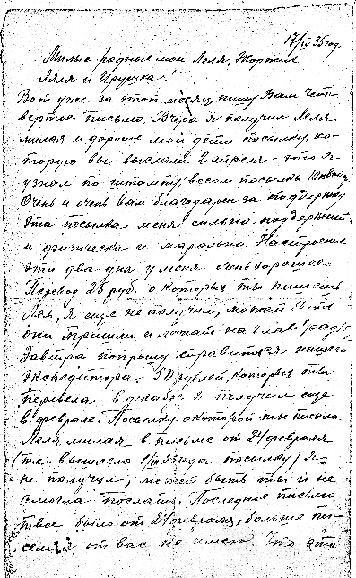 17/IV 35 год.
Милые родные мои Леля, Жоржик
Ляля и Ирушка!
Вот уже за этот месяц пишу Вам чет-
вертое письмо. Вчера я получил Леля
милая и дорогие мои дети посылку, ко-
торую вы выслали 2 апреля - это я
узнал по штемпу, всем посылка
Очень и очень вам благодарен за поддержку
эта посылка меня сильно поддержит
и физически и морально. Настроение
эти два дня у меня очень хорошее.
Перевод 25 руб. о которых ты пишешь
Леля, я еще не получил, может быть
они пришли и лежат на
завтра попрошу справиться нашего
экспедитора. 50 рублей, которые ты
перевела, в я получил еще
в феврале. Посылку о которой ты писала
Леля милая в письме от 24 февраля
(ты выслала посылку) я
не получил, может быть ты и не
смогла послать. Последнее письмо
твое было от 24 февраля, больше пи-
сем от вас не имею. Что это